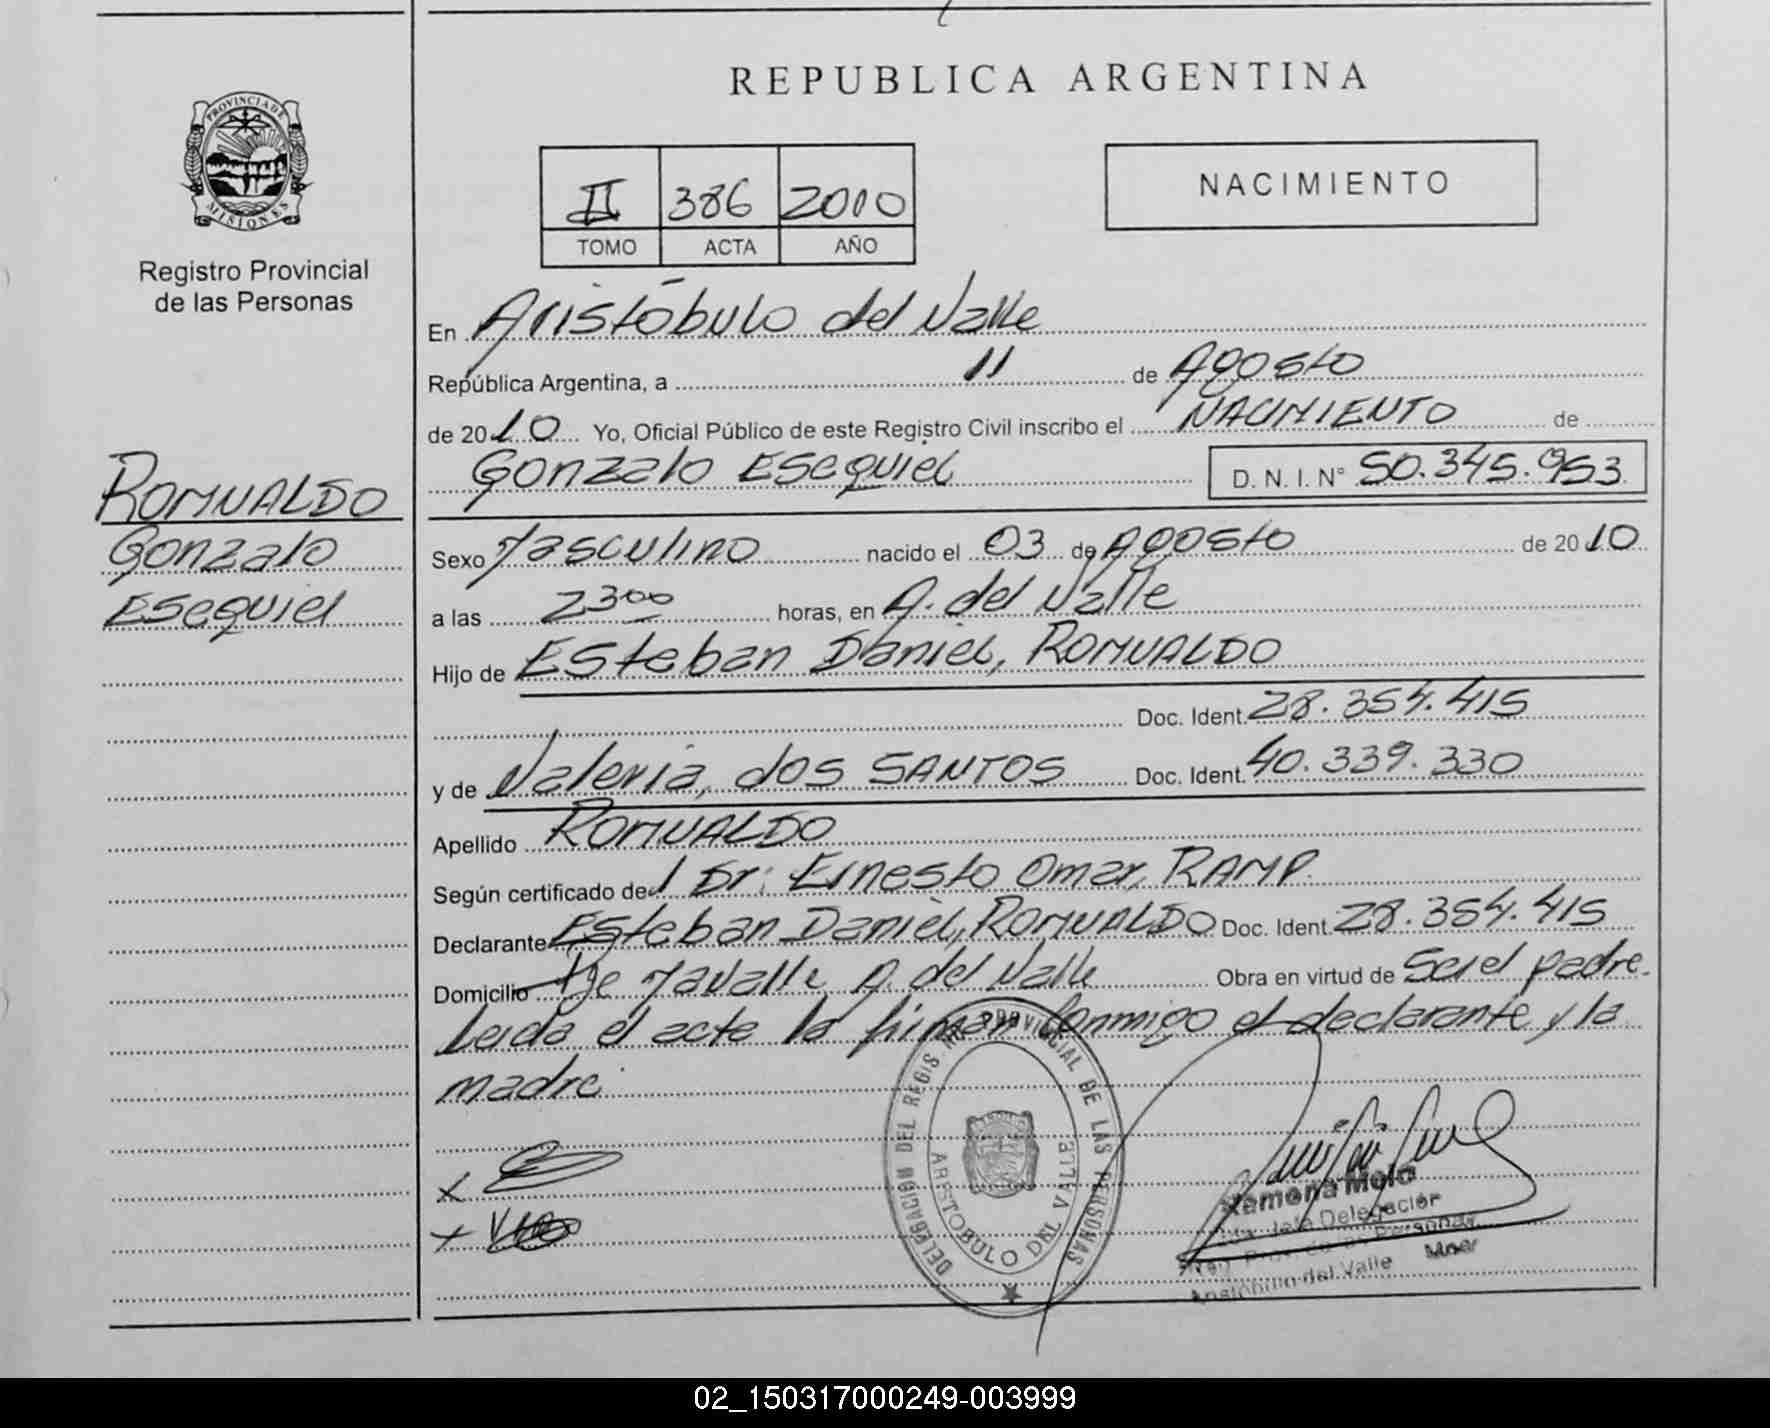 REPUBLICA ARGENTINA
PROVINCIA DE
MISIONES
Registro Provincial
de las Personas
II 386 2010
TOMO ACTA AÑO
NACIMIENTO
En Aristóbulo del Valle
República Argentina, a 11 de Agosto
de 2010 Yo, Oficial Público de este Registro Civil inscribo el NACIMIENTO de
Gonzalo Esequiel D. N. I. N° 50.345.953
ROMUALDO
Gonzalo
Esequiel
Sexo Masculino nacido el 03 de Agosto de 2010
a las 23 00 horas, en A. del Valle
Hijo de Esteban Daniel, ROMUALDO
Doc. Ident. 28.354.415
y de Valeria, dos SANTOS Doc. Ident. 40.339.330
Apellido ROMUALDO
Según certificado del Dr: Ernesto Omar, RAMP.
Declarante Esteban Daniel, ROMUALDO Doc. Ident. 28.354.415
Domicilio A. del Valle Obra en virtud de Ser el padre.
Leida el acta la firman Conmigo el declarante y la
madre.
DELEGACION DEL REGISTRO PROVINCIAL DE LAS PERSONAS
ARISTOBULO DEL VALLE
Ramona Melo
Jefe Delegación
Reg. Prov. de las Personas
Aristóbulo del Valle Mnes
02_150317000249-003999